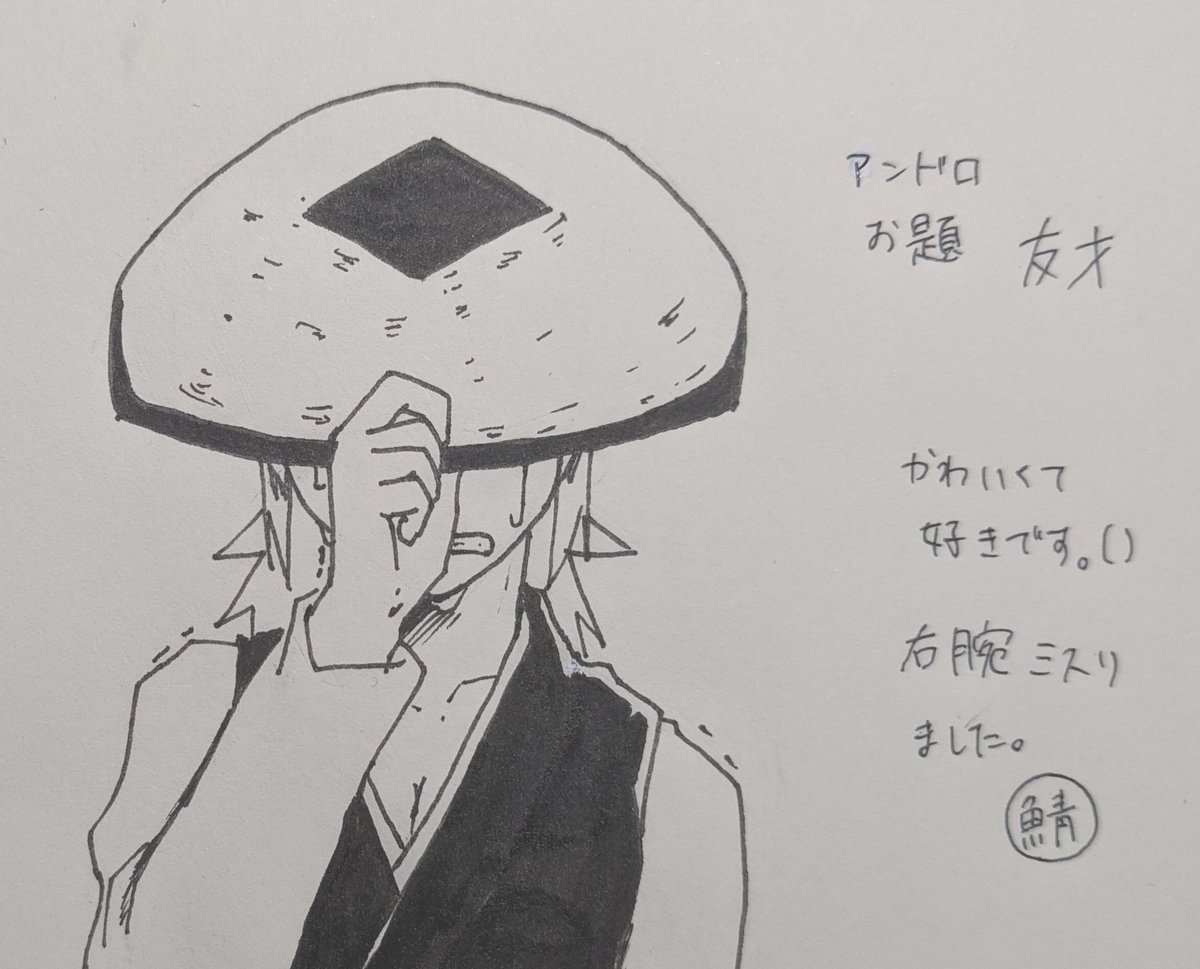 アンドロ
お題 友才
かわいくて
好きです。()
右腕ミスり
ました。
鯖